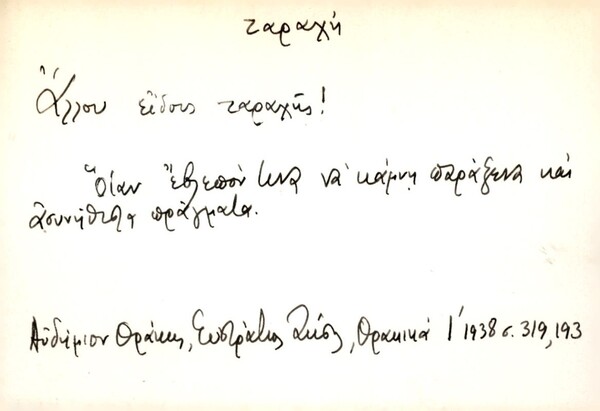 ταραχή
Ἄλλου εἴδους ταραχῆς!
Ὅταν ἔβλεπόν τινα νὰ κάμνῃ παράξενα καὶ
ἀσυνήθιστα πράγματα.
Αὐδήμιον Θράκης, Εὐστράτιος Ζήσης, Θρακικά Ι΄ 1938 σ. 319, 193